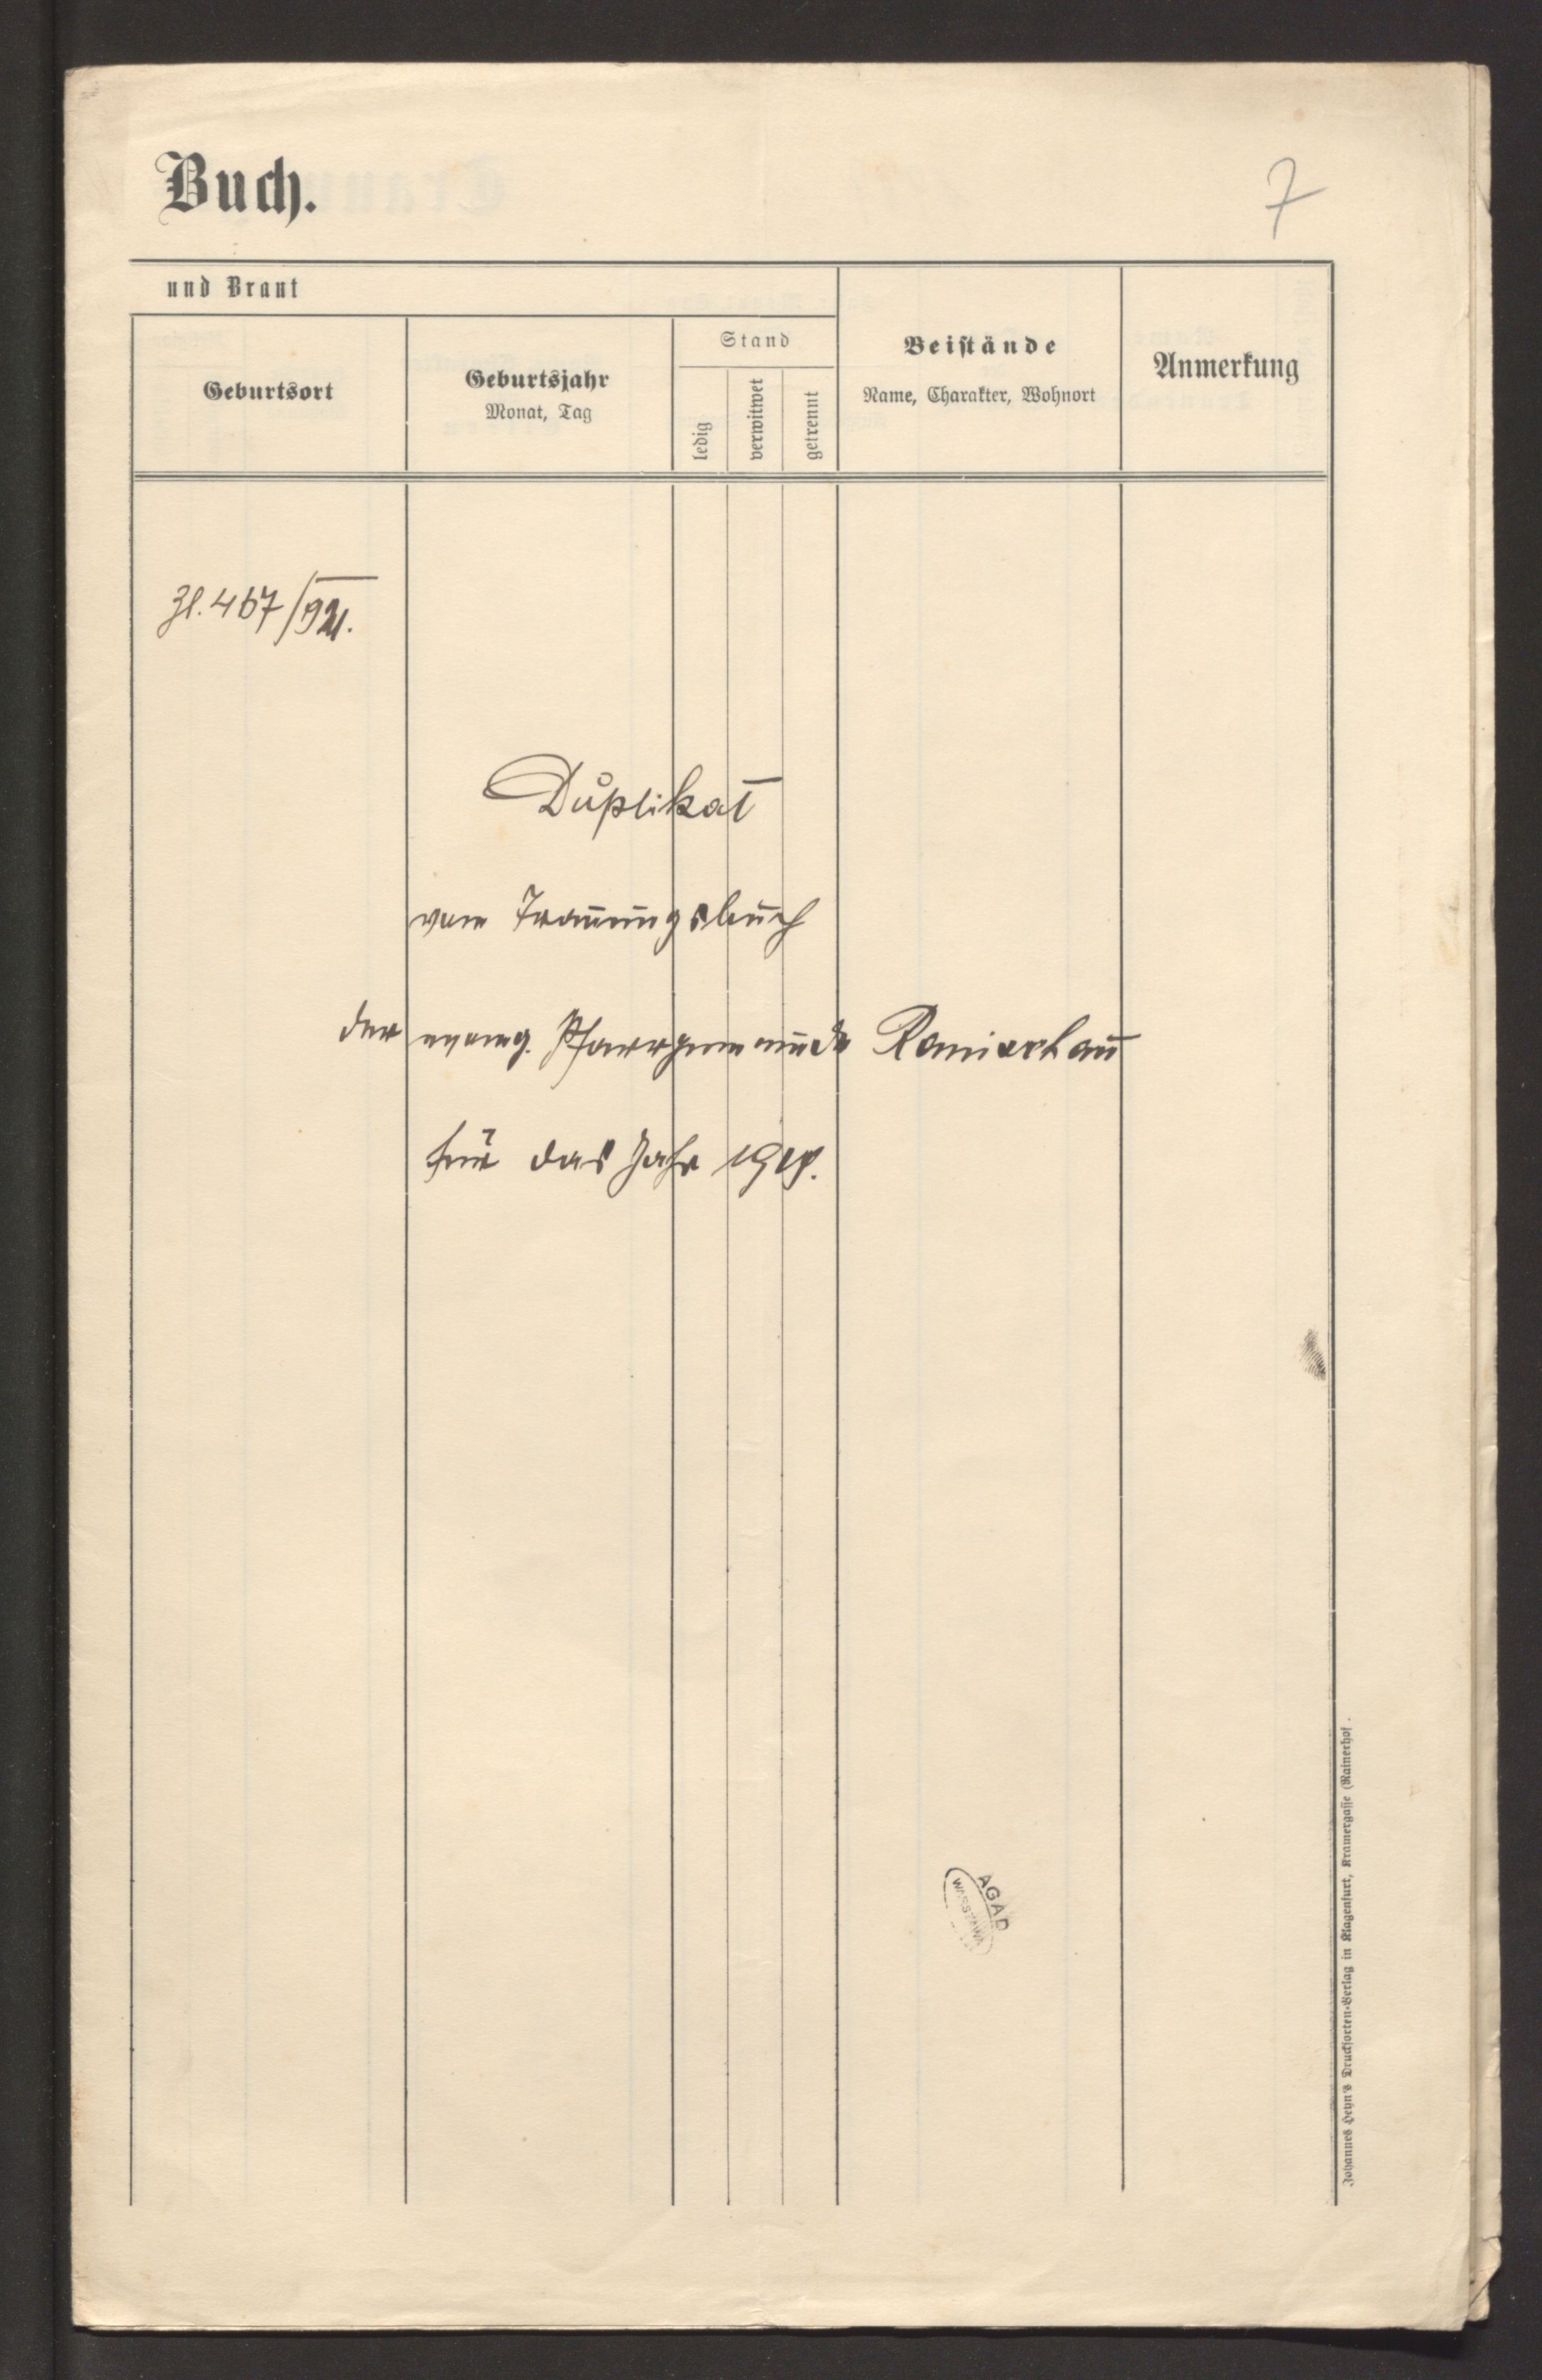 Buch.
7
und Braut
Geburtsort
Geburtsjahr
Monat, Tag
Stand
ledig
verwitwet
getrennt
Beistände
Name, Charakter, Wohnort
Anmerkung
Zl. 467/921.
Duplikat
vom Trauungsbuch
der evang. Pfarrgemeinde Ranischau
für das Jahr 1918.
AGAD
WARSZAWA
Johannes Heyn's Drucksorten-Verlag in Klagenfurt, Kramergasse (Rainerhof .